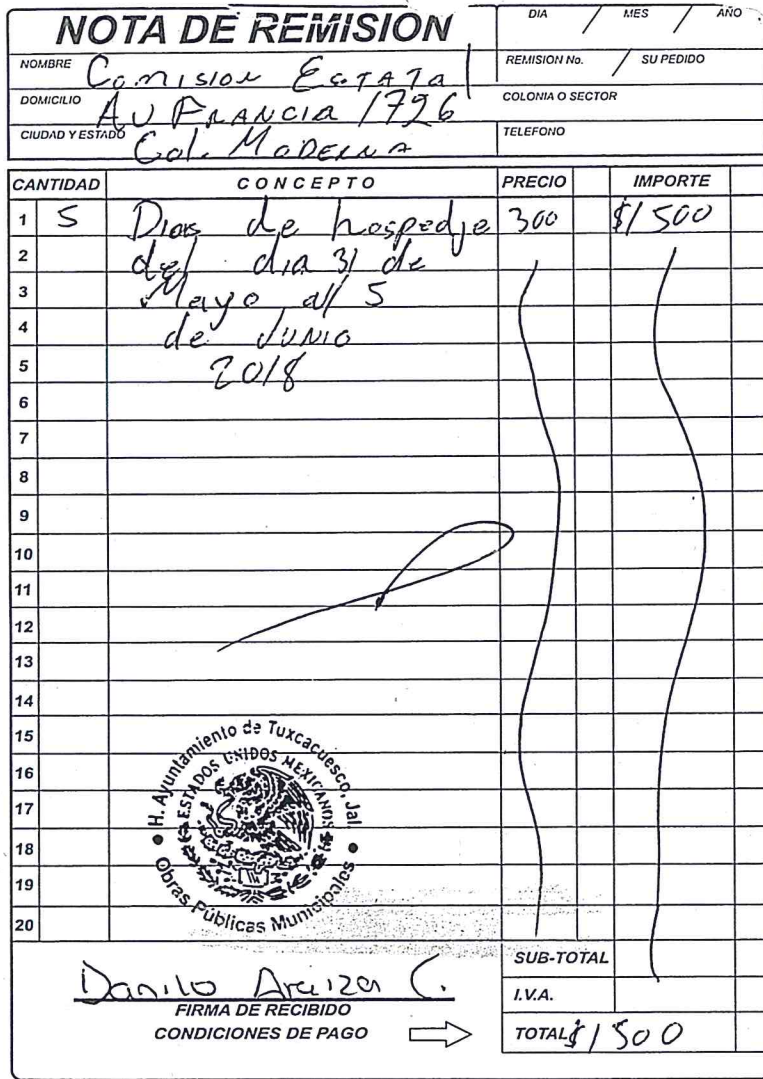 NOTA DE REMISION
DIA / MES / AÑO
NOMBRE Comision Estatal
REMISION No. / SU PEDIDO
DOMICILIO AV FRANCIA 1726
COLONIA O SECTOR
CIUDAD Y ESTADO Col. MODERNA
TELEFONO
CANTIDAD CONCEPTO PRECIO IMPORTE
1 5 Dias de hospedje 300 $1500
2 del dia 31 de
3 Mayo al 5
4 de JUNIO
5 2018
6
7
8
9
10
11
12
13
14
15
16
17
18
19
20
H. Ayuntamiento de Tuxcacuesco, Jal.
ESTADOS UNIDOS MEXICANOS
Obras Públicas Municipales
SUB-TOTAL
Danilo Araiza C.
I.V.A.
FIRMA DE RECIBIDO
CONDICIONES DE PAGO
TOTAL $1500